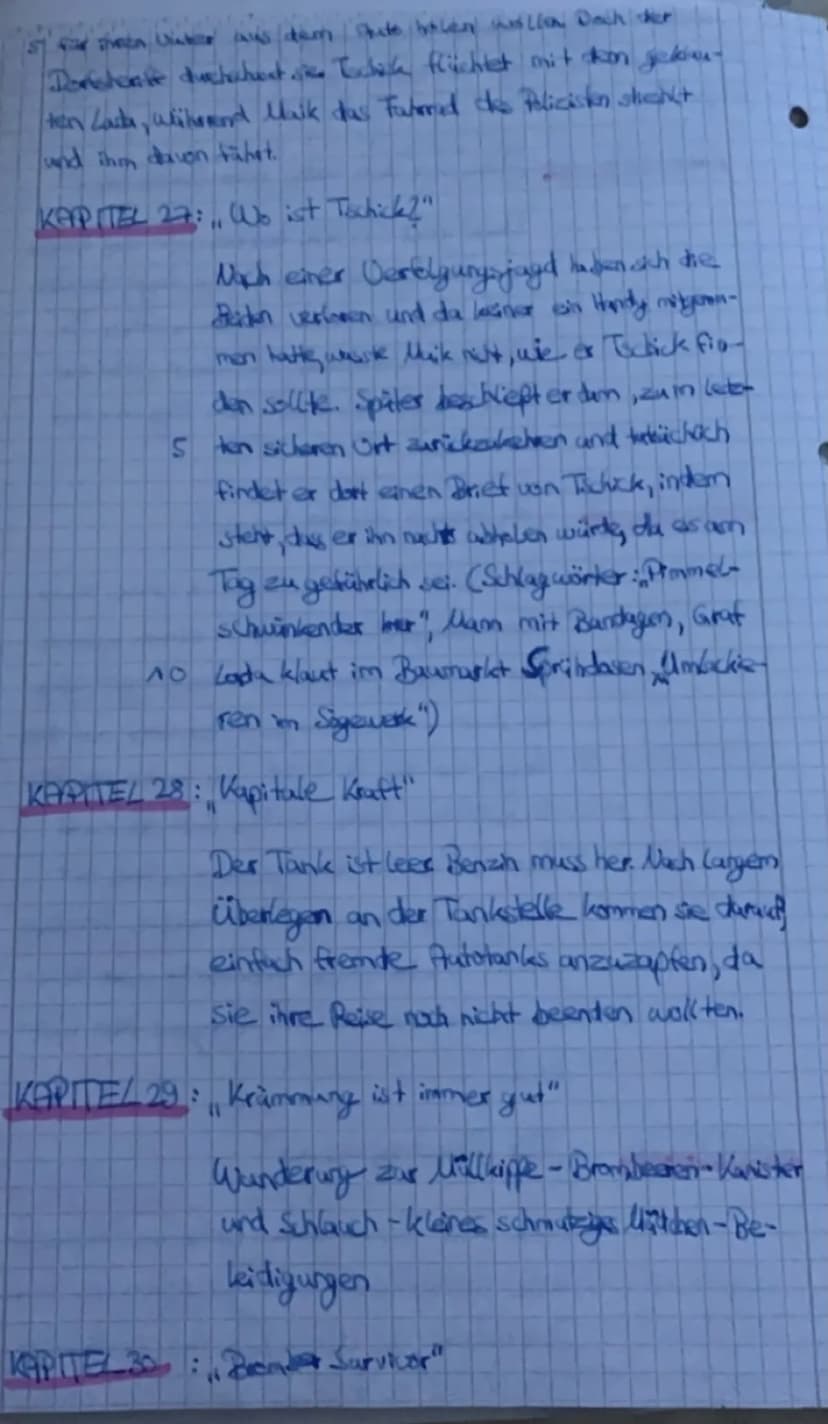 5) für ihren Vater aus dem Auto holen wollen Doch der
Dorfsheriff durchschaut sie. Tschick flüchtet mit dem geklau-
ten Lada, während Maik das Fahrrad des Polizisten stiehlt
und ihm davon fährt.
KAPITEL 27: „Wo ist Tschick?"
Nach einer Verfolgungsjagd haben sich die
Beiden verloren und da keiner ein Handy mitgenom-
men hatte, wusste Maik nicht, wie er Tschick fin-
den sollte. Später beschließt er dann, zum letz-
5 ten sicheren Ort zurückzukehren und tatsächlich
findet er dort einen Brief von Tschick, indem
steht, dass er ihn nachts abholen würde, da es am
Tag zu gefährlich sei. (Schlagwörter: „Pimmel-
schwinkender", Mann mit Bandagen, Graf
10 Lada klaut im Baumarkt Sprühdosen, „Umlackie-
ren im Sägewerk")
KAPITEL 28: „Kapitale Kraft"
Der Tank ist leer Benzin muss her. Nach langem
Überlegen an der Tankstelle kommen sie darauf,
einfach fremde Autotanks anzuzapfen, da
sie ihre Reise noch nicht beenden wollten.
KAPITEL 29: „Krümmung ist immer gut"
Wanderung zur Müllkippe - Brombeeren - Kanister
und Schlauch - kleines schmutziges Mädchen - Be-
leidigungen
KAPITEL 30: „Survivor"